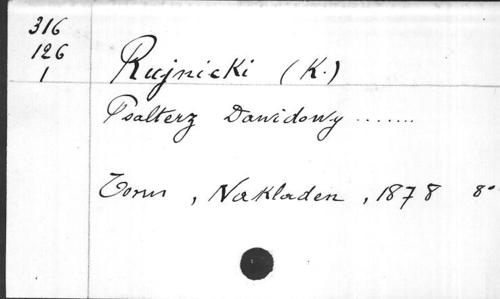 316
126
1
Rujnicki (K.)
Psalterz Dawidowy .......
Torun , Nakladen , 1878 8°